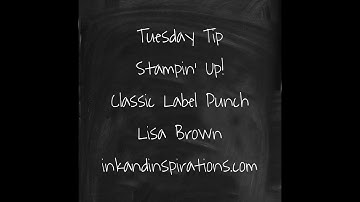 Tuesday Tip
Stampin' Up!
Classic Label Punch
Lisa Brown
inkandinspirations.com